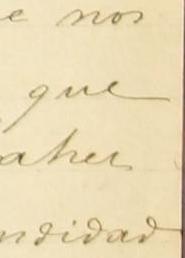 e nos
que
aher
ndidad